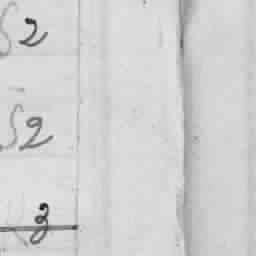 S2
S2
3